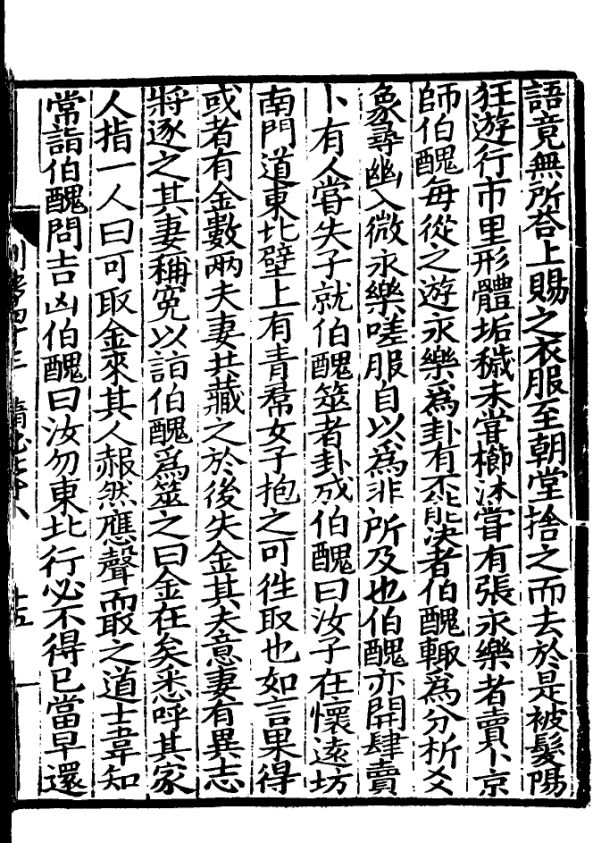 語竟無所荅上賜之衣服至朝堂捨之而去於是被髮陽
狂遊行市里形體垢穢未嘗櫛沐嘗有張永樂者賣卜京
師伯醜每從之遊永樂爲卦有不能決者伯醜輒爲分析爻
象尋幽入微永樂嗟服自以爲非所及也伯醜亦開肆賣
卜有人嘗失子就伯醜筮者卦成伯醜曰汝子在懷遠坊
南門道東北壁上有青帬女子抱之可往取也如言果得
或者有金數兩夫妻共藏之於後失金其夫意妻有異志
將逐之其妻稱冤以詣伯醜爲筮之曰金在矣悉呼其家
人指一人曰可取金來其人赧然應聲而取之道士韋知
常詣伯醜問吉凶伯醜曰汝勿東北行必不得已當早還
十五